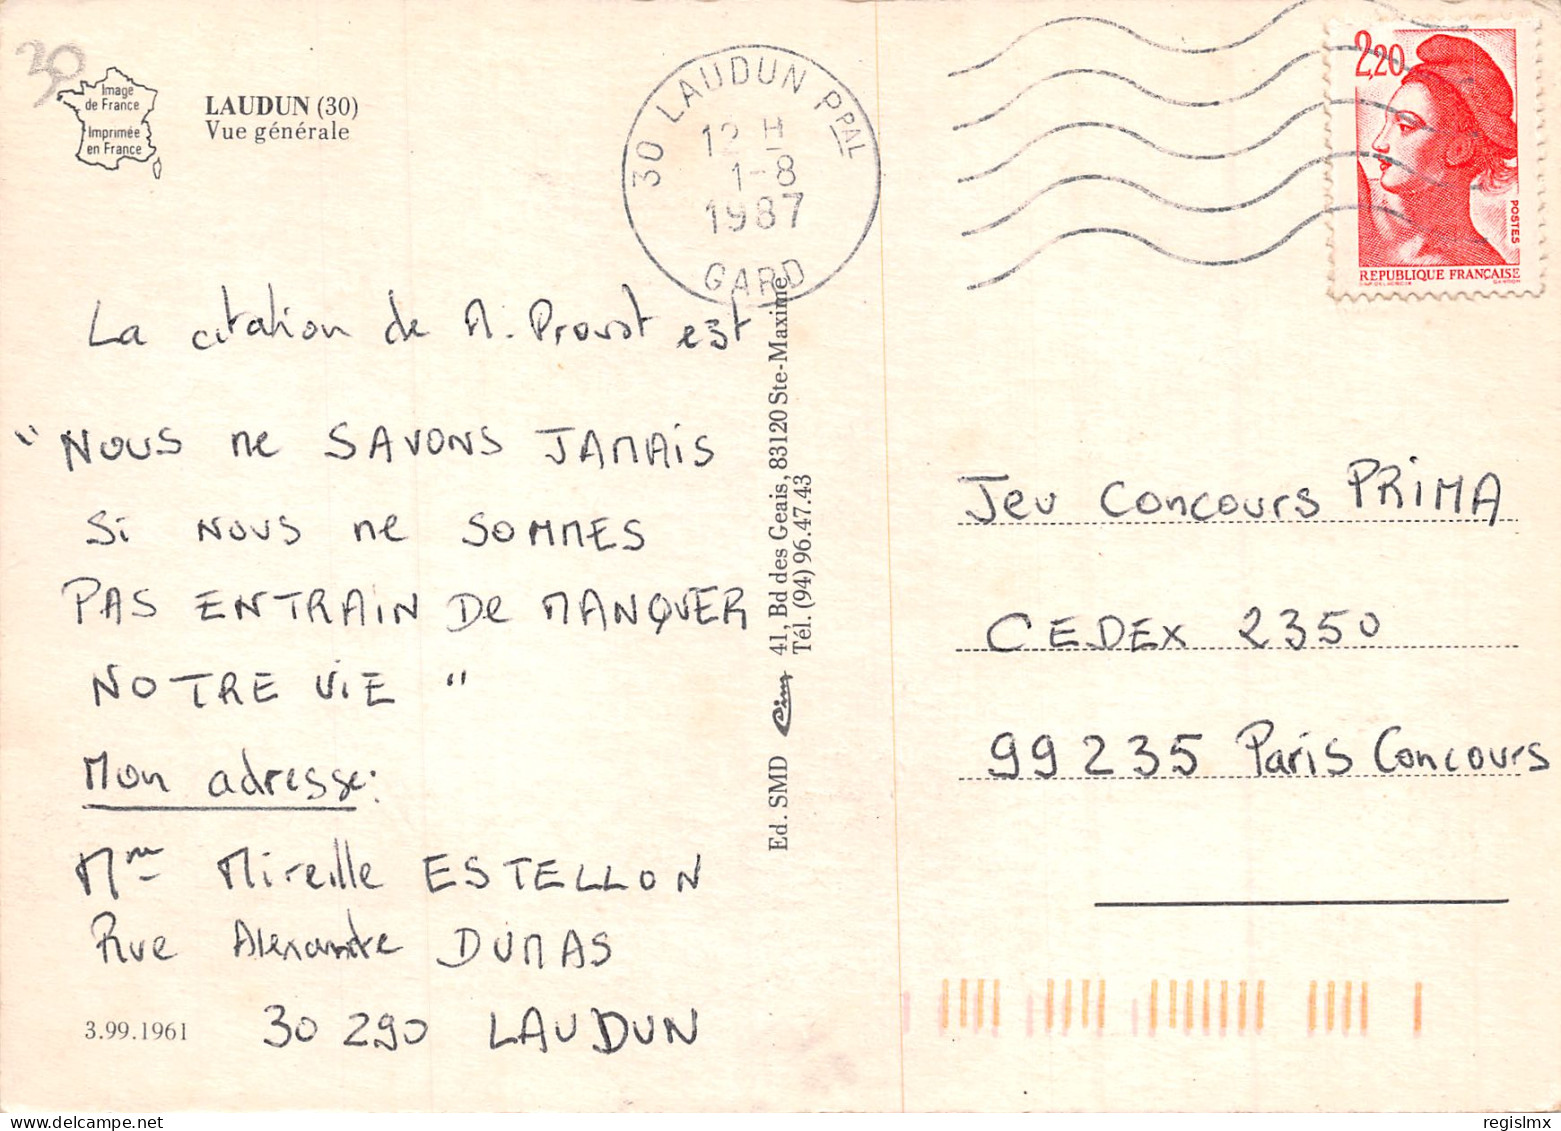 30
Image
de France
Imprimée
en France
LAUDUN (30)
Vue générale
30 LAUDUN PPAL
12 H
1-8
1987
GARD
2,20
POSTES
REPUBLIQUE FRANÇAISE
La citation de M. Proust est
" NOUS ne SAVONS JAMAIS
Si NOUS ne SOMMES
PAS ENTRAIN De MANQUER
NOTRE ViE "
Mon adresse:
Mme Mireille ESTELLON
Rue Alexandre DUMAS
30 290 LAUDUN
3.99.1961
Ed. SMD Cim 41, Bd des Geais, 83120 Ste-Maxime
Tél. (94) 96.47.43
Jeu Concours PRiMA
CEDEX 2350
99235 Paris Concours
regislmx